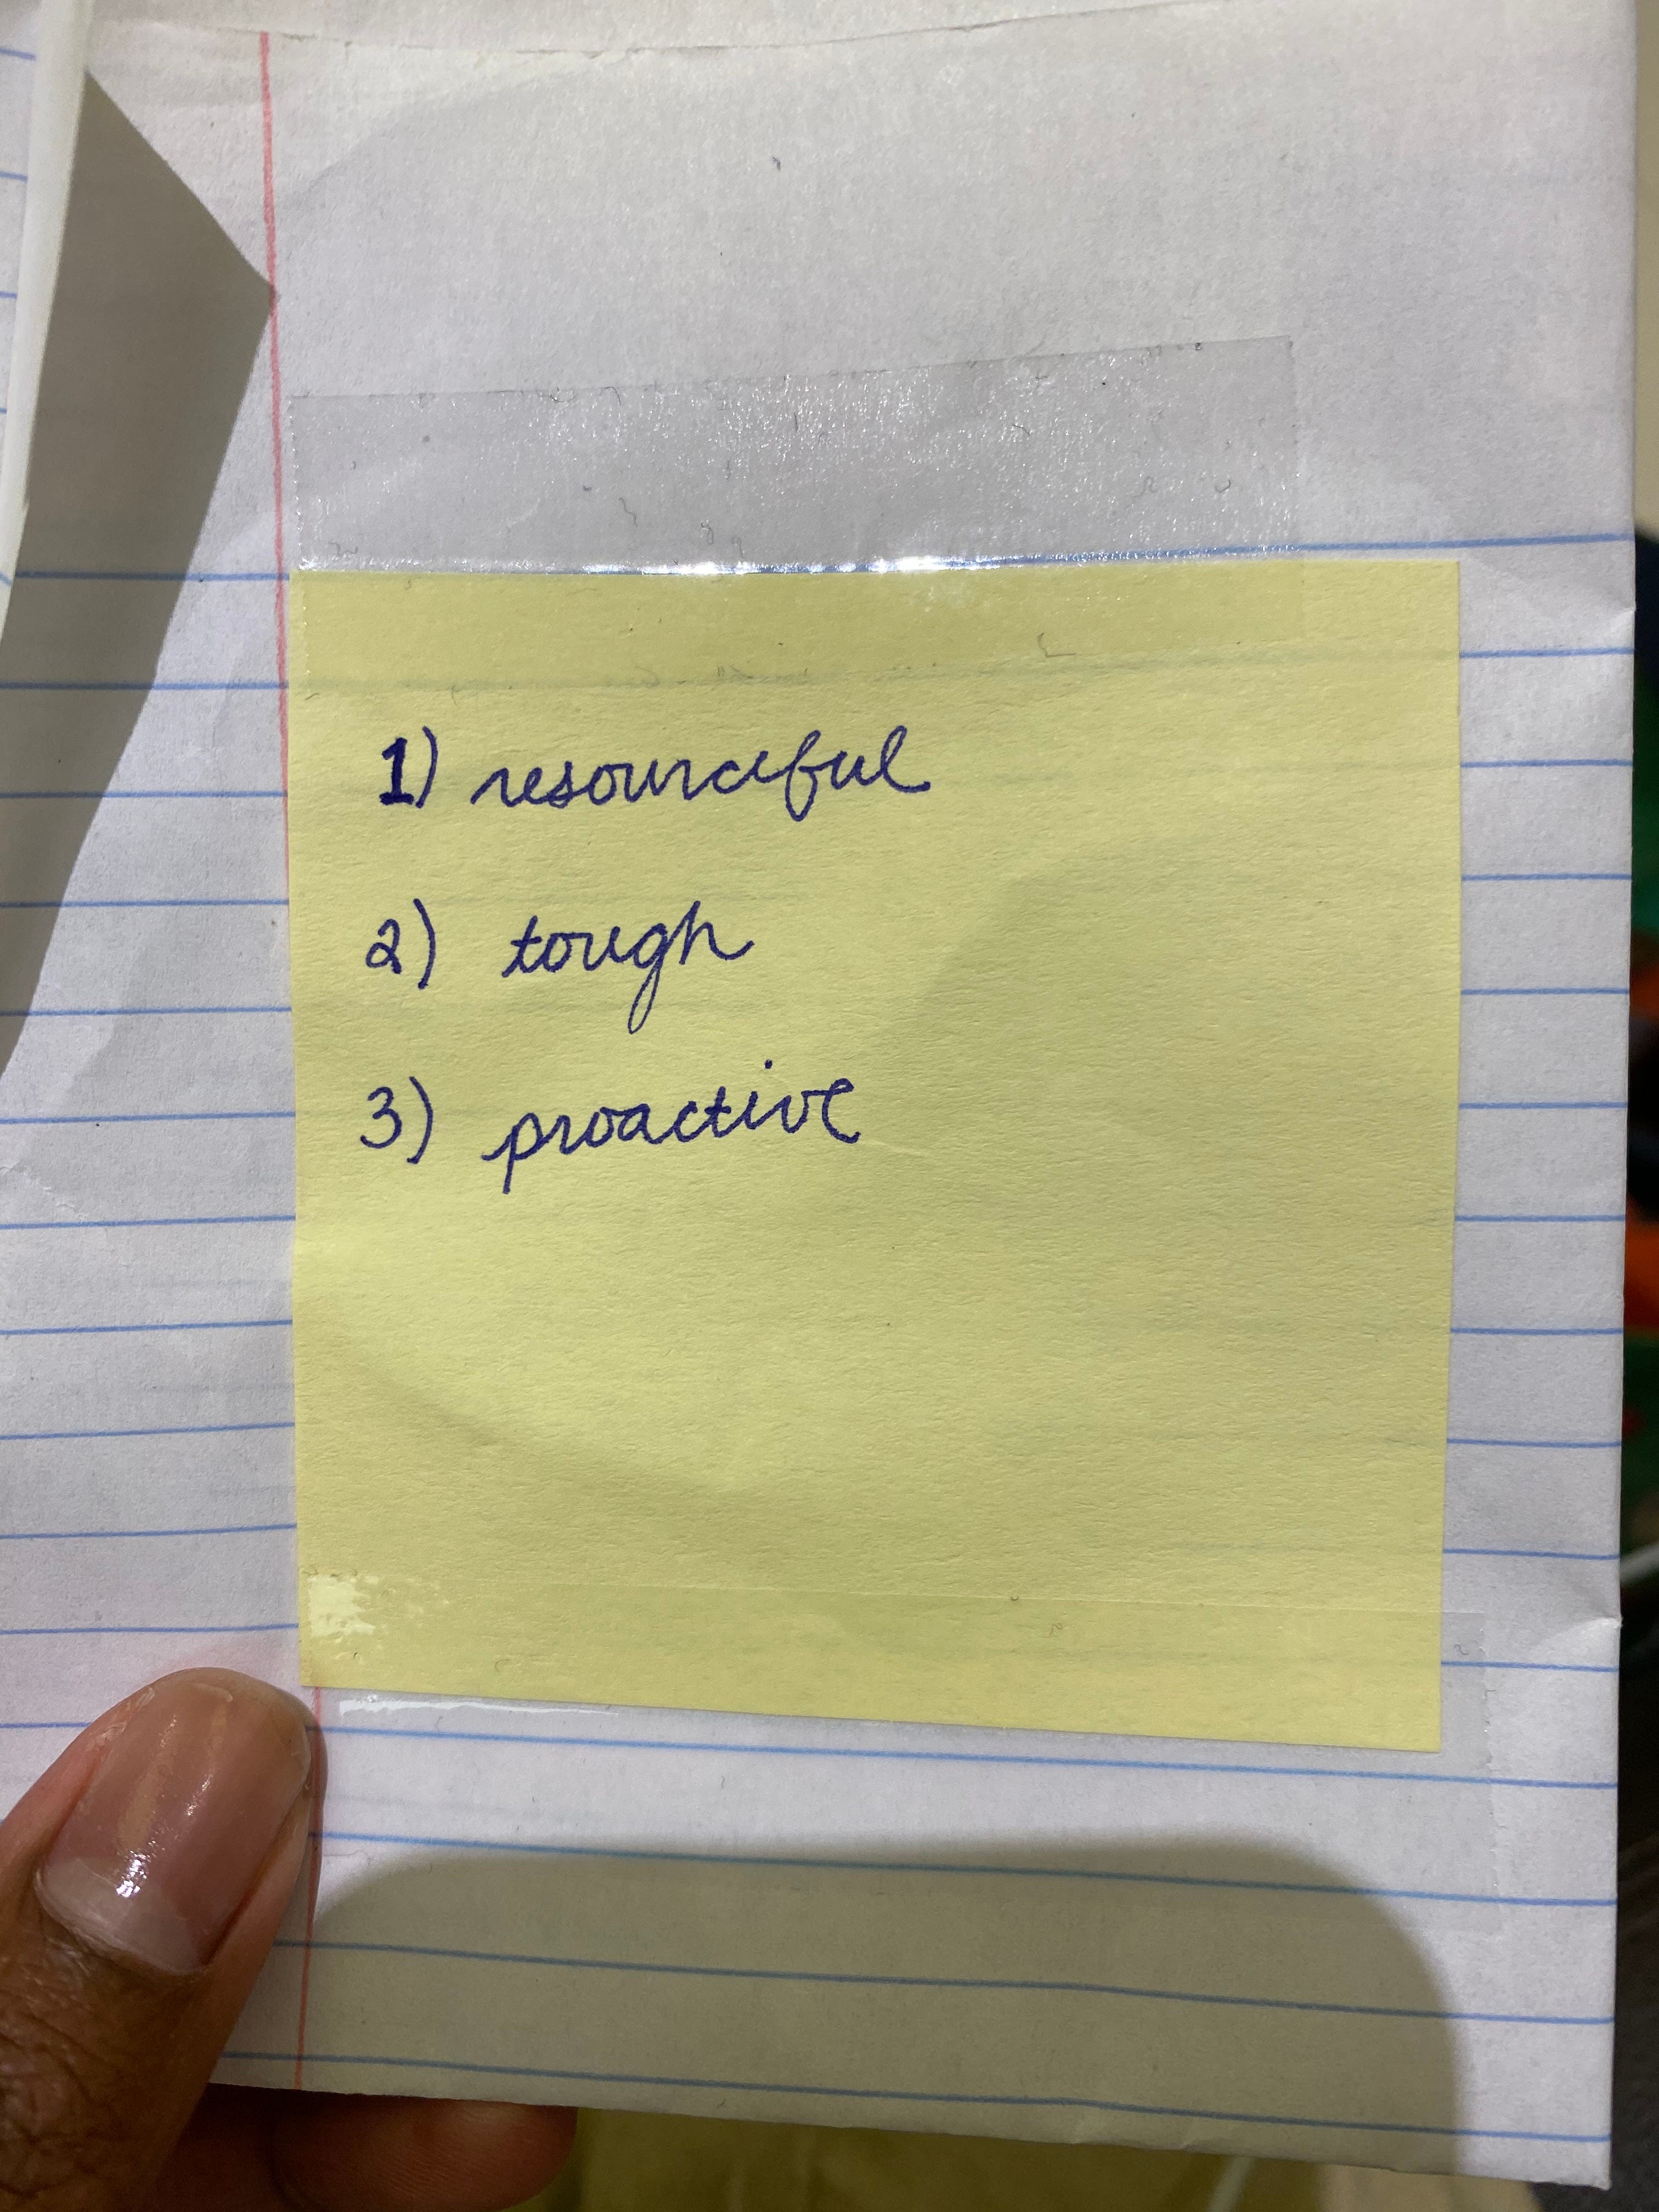 1) resourceful
2) tough
3) proactive